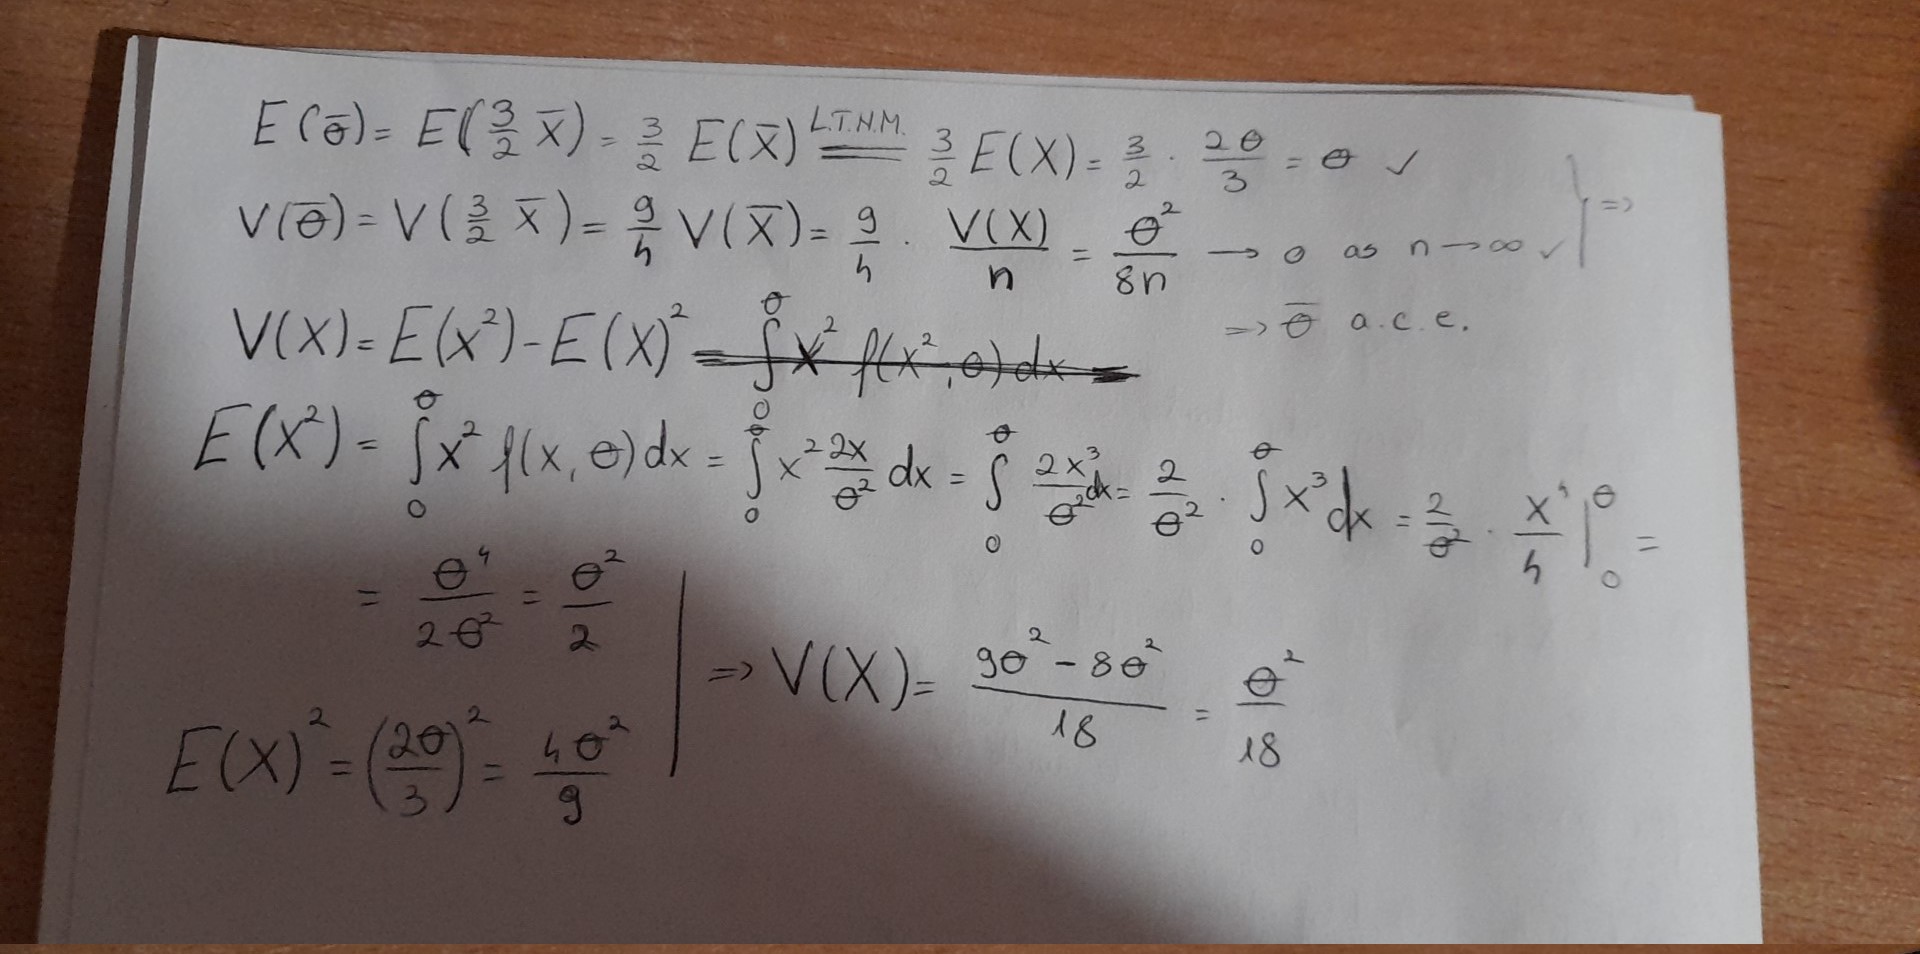 E(θ̅) = E(3/2 X̅) = 3/2 E(X̅) =(L.T.N.M.) 3/2 E(X) = 3/2 · 2θ/3 = θ ✓
V(θ̅) = V(3/2 X̅) = 9/4 V(X̅) = 9/4 · V(X)/n = θ²/8n → 0 as n → ∞ ✓ } =>
=> θ̅ a.c.e.
V(X) = E(X²) - E(X)² = ∫₀^θ x² f(x², θ) dx =
E(X²) = ∫₀^θ x² f(x, θ) dx = ∫₀^θ x² 2x/θ² dx = ∫₀^θ 2x³/θ² dx = 2/θ² · ∫₀^θ x³ dx = 2/θ² · x⁴/4 |₀^θ =
= θ⁴/2θ² = θ²/2
=> V(X) = (9θ² - 8θ²)/18 = θ²/18
E(X)² = (2θ/3)² = 4θ²/9